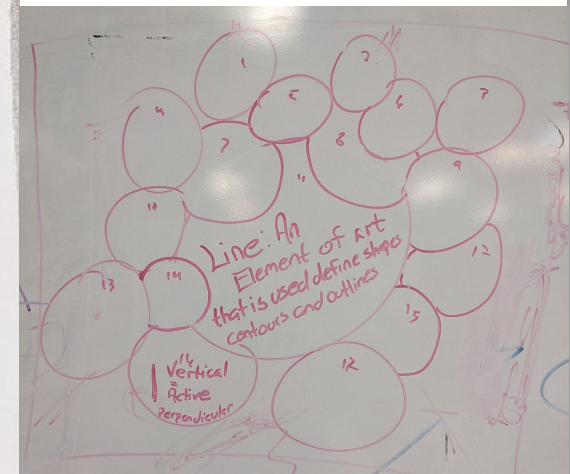 1
2
5
6
3
4
7
8
9
11
10
12
13
14
15
12
Line: An
Element of art
that is used define shapes
contours and outlines
14
Vertical
=
Active
perpendicular